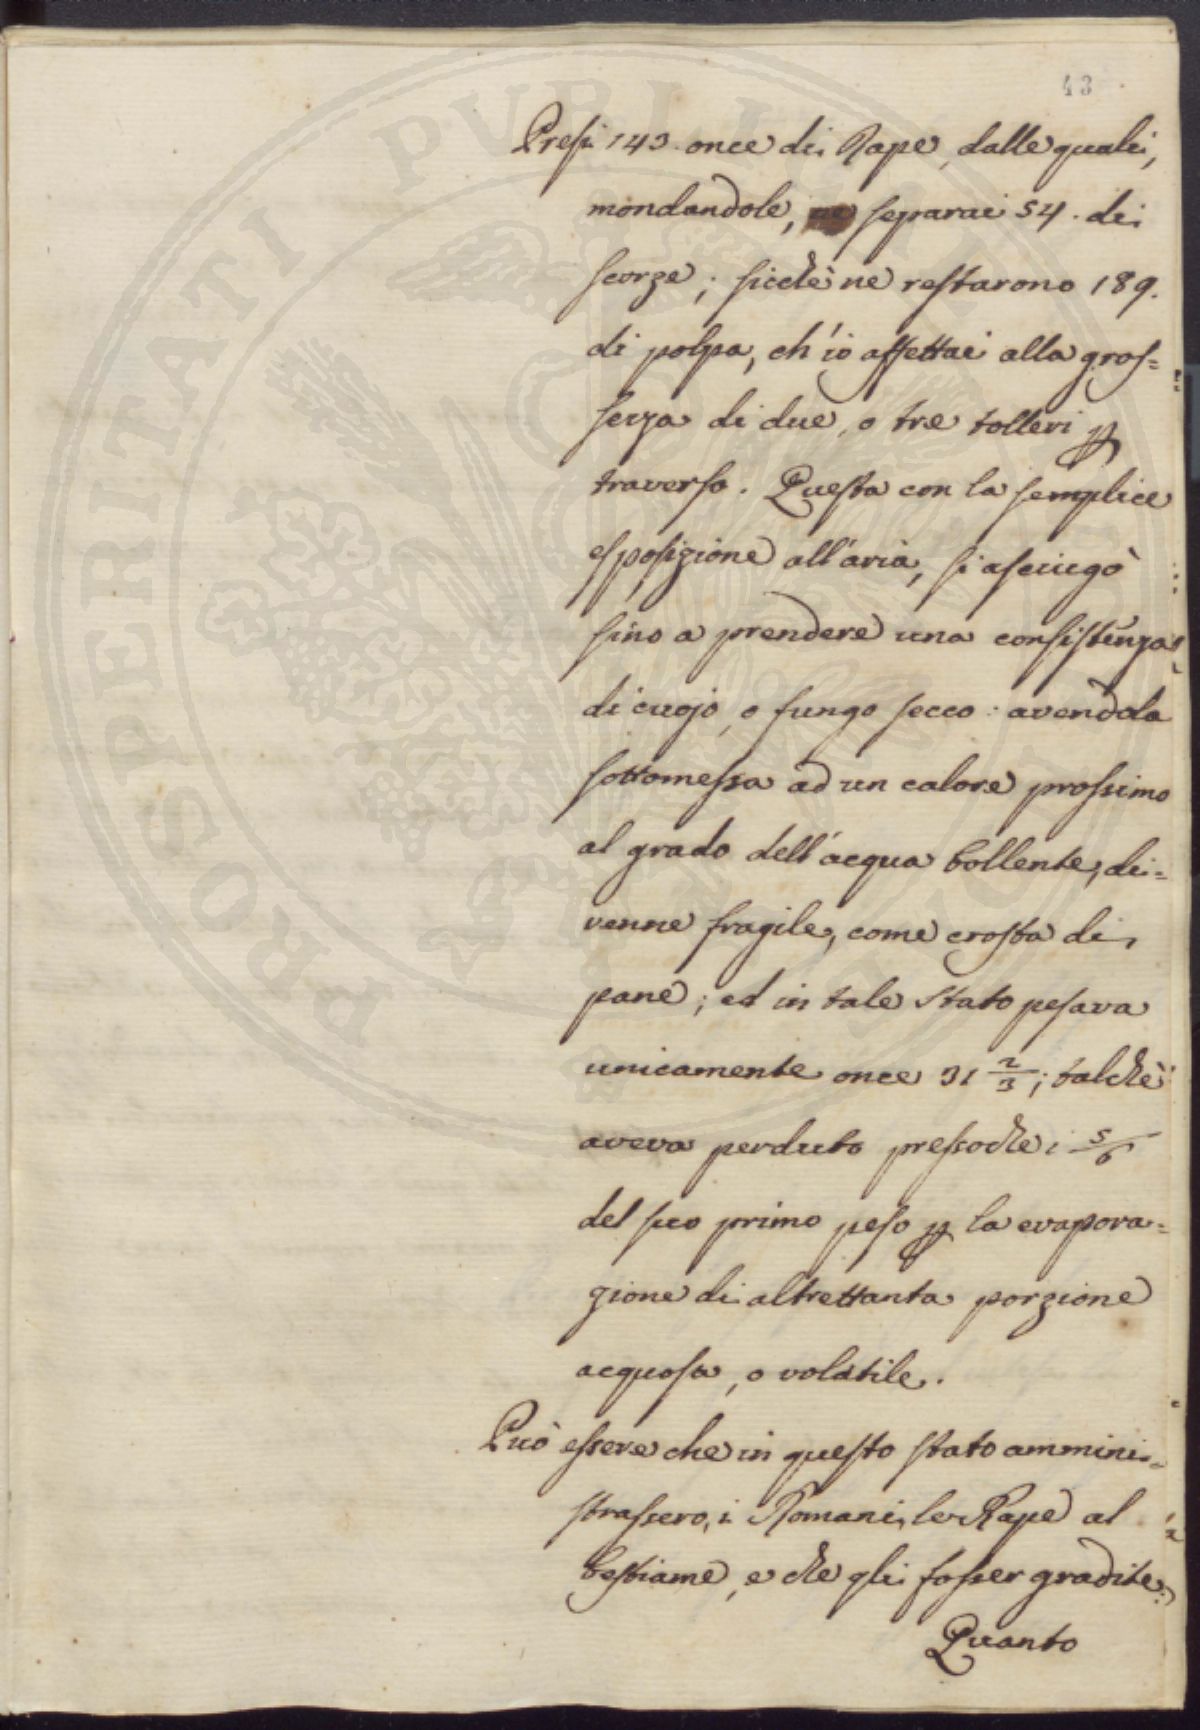 43
Presi 143. once di Rape, dalle quali,
mondandole, ne separai 54. di
scorze; sicchè ne restarono 189.
di polpa, ch'io affettai alla gros=
sezza di due, o tre tolleri p
traverso. Questa con la semplice
esposizione all'aria, si asciugò
sino a prendere una consistenza
di cuojo, o fungo secco: avendola
sottomessa ad un calore prossimo
al grado dell'acqua bollente, di=
venne fragile, come crosta di
pane; ed in tale stato pesava
unicamente once 31 2/3; talchè
aveva perduto pressochè i 5/6
del suo primo peso p la evapora=
zione di altrettanta porzione
acquosa, o volatile.
Può essere che in questo stato ammini=
strassero, i Romani, le Rape al
bestiame, e che gli fosser gradite.
Quanto
PROSPERITATI PUBLI